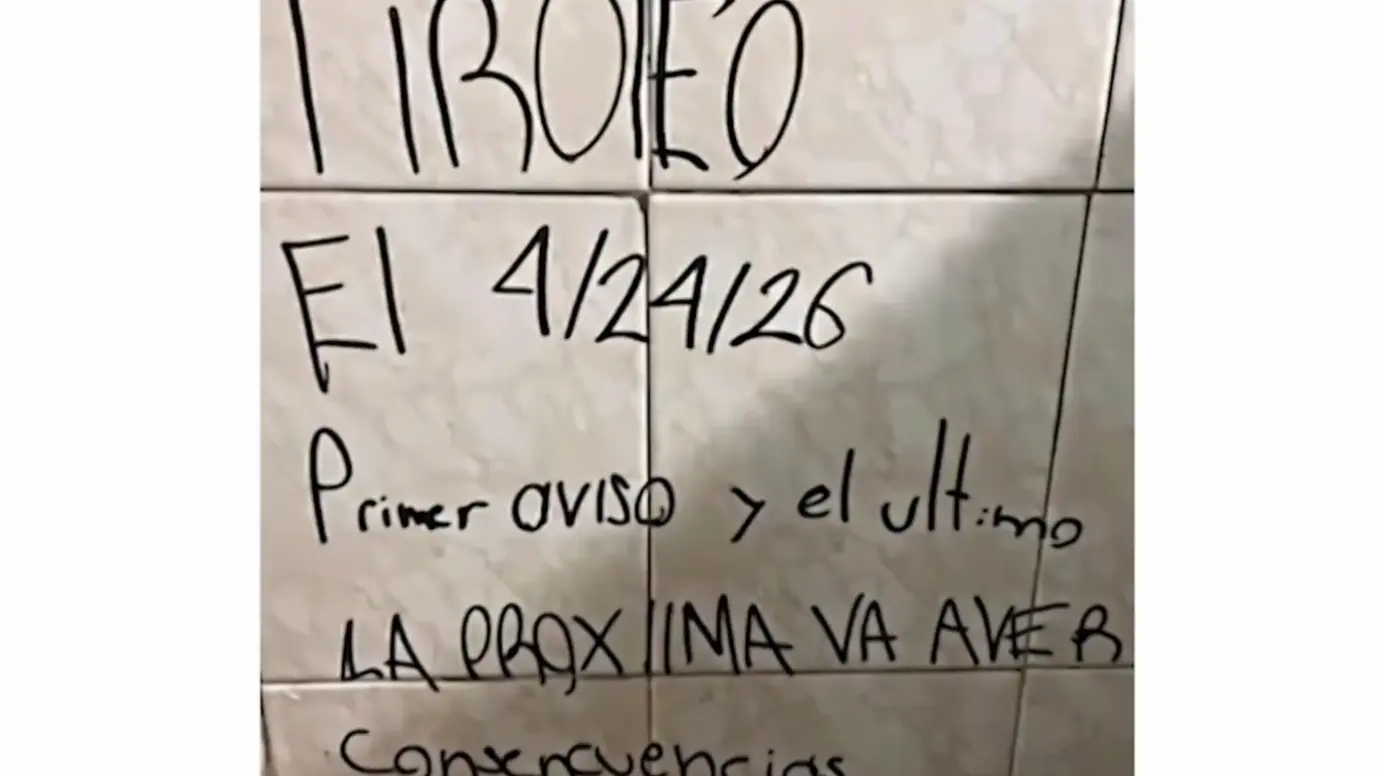 TIROTEO
El 4/24/26
Primer aviso y el ultimo
LA PROXIIMA VA AVER
Consercuencias